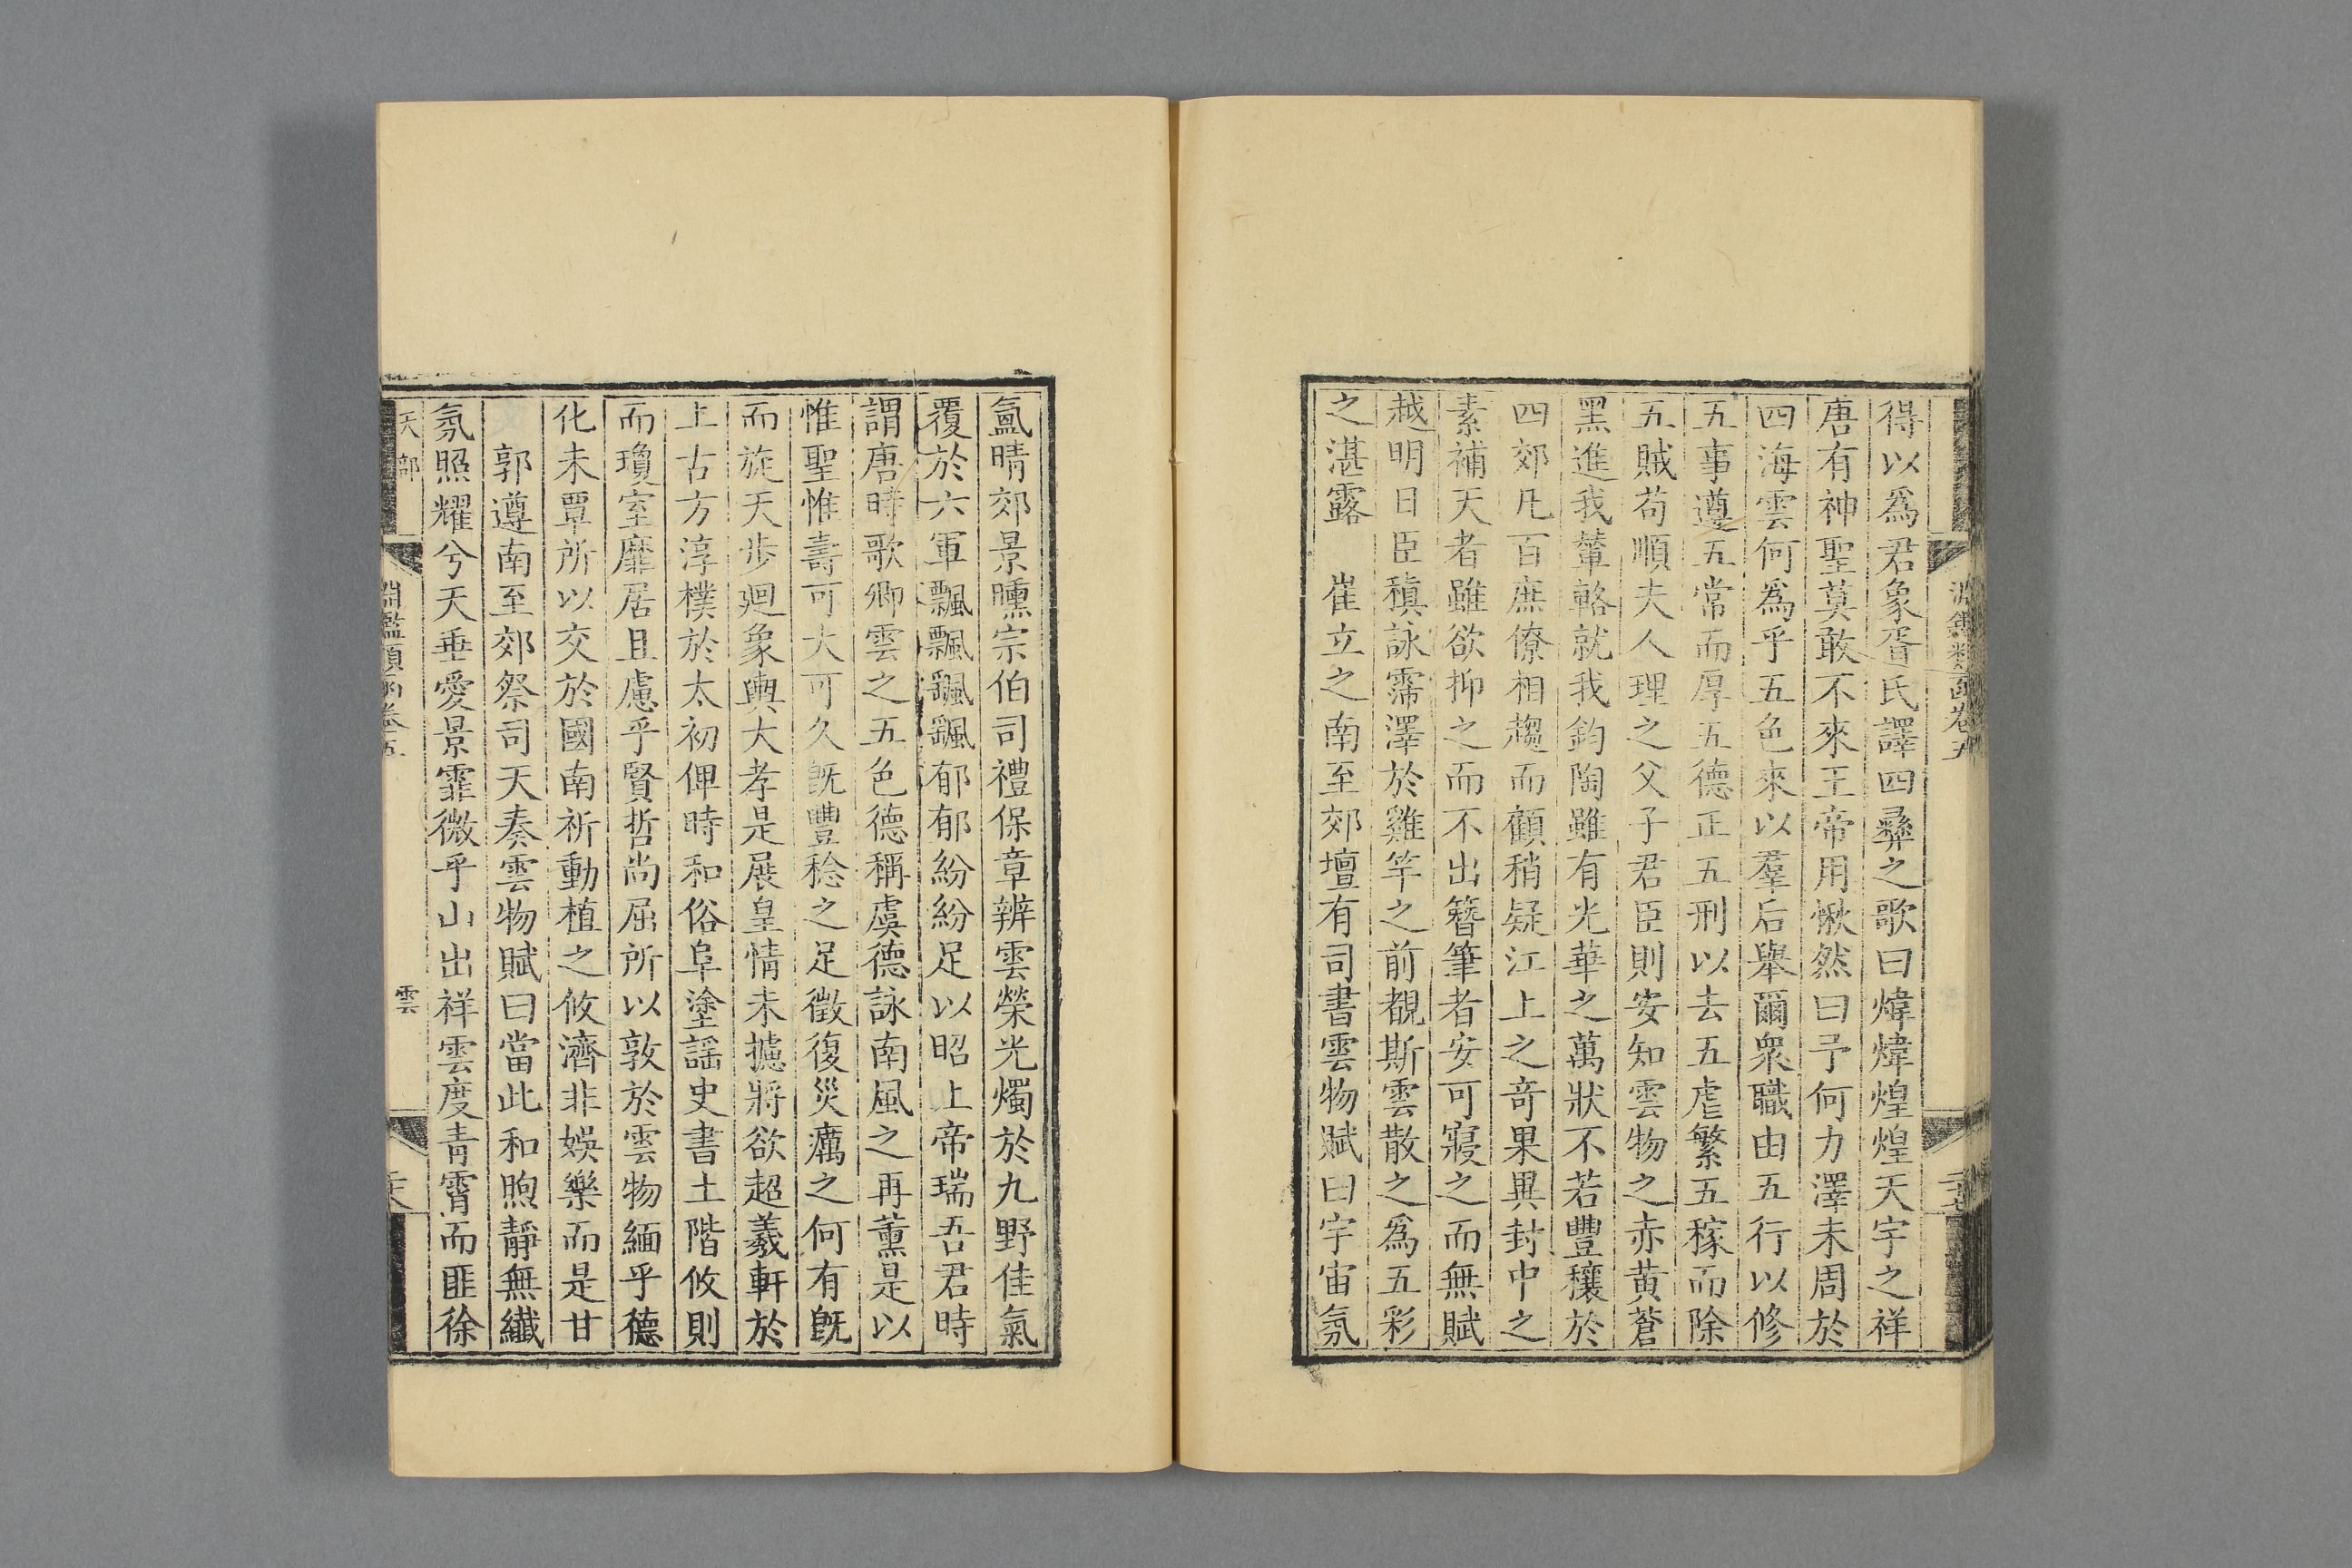 淵鑑類函卷五
得以爲君象胥氏譯四彝之歌曰煒煒煌煌天宇之祥
唐有神聖莫敢不來王帝用愀然曰予何力澤未周於
四海雲何爲乎五色來以羣后舉爾衆職由五行以修
五事遵五常而厚五德正五刑以去五虐繁五稼而除
五賊苟順夫人理之父子君臣則安知雲物之赤黄蒼
黑進我輦輅就我鈞陶雖有光華之萬狀不若豐穰於
四郊凡百庶僚相趨而顧稍疑江上之奇果異封中之
素補天者雖欲抑之而不出簪筆者安可寢之而無賦
越明日臣稹詠霈澤於雞竿之前覩斯雲散之爲五彩
之湛露 崔立之南至郊壇有司書雲物賦曰宇宙氛
氳晴郊景曛宗伯司禮保章辨雲榮光燭於九野佳氣
覆於六軍飄飄颻颻郁郁紛紛足以昭上帝瑞吾君時
謂唐時歌卿雲之五色德稱虞德詠南風之再薰是以
惟聖惟壽可大可久旣豐稔之足徵復災癘之何有旣
而旋天步廻象輿大孝是展皇情未攄將欲超羲軒於
上古方淳樸於太初俾時和俗阜塗謡史書土階攸則
而瓊室靡居且慮乎賢哲尚屈所以敦於雲物緬乎德
化未覃所以交於國南祈動植之攸濟非娯樂而是甘
郭遵南至郊祭司天奏雲物賦曰當此和煦靜無纖
氛照耀兮天垂愛景霏微乎山出祥雲度青霄而匪徐
天部 淵鑑類函卷五 雲